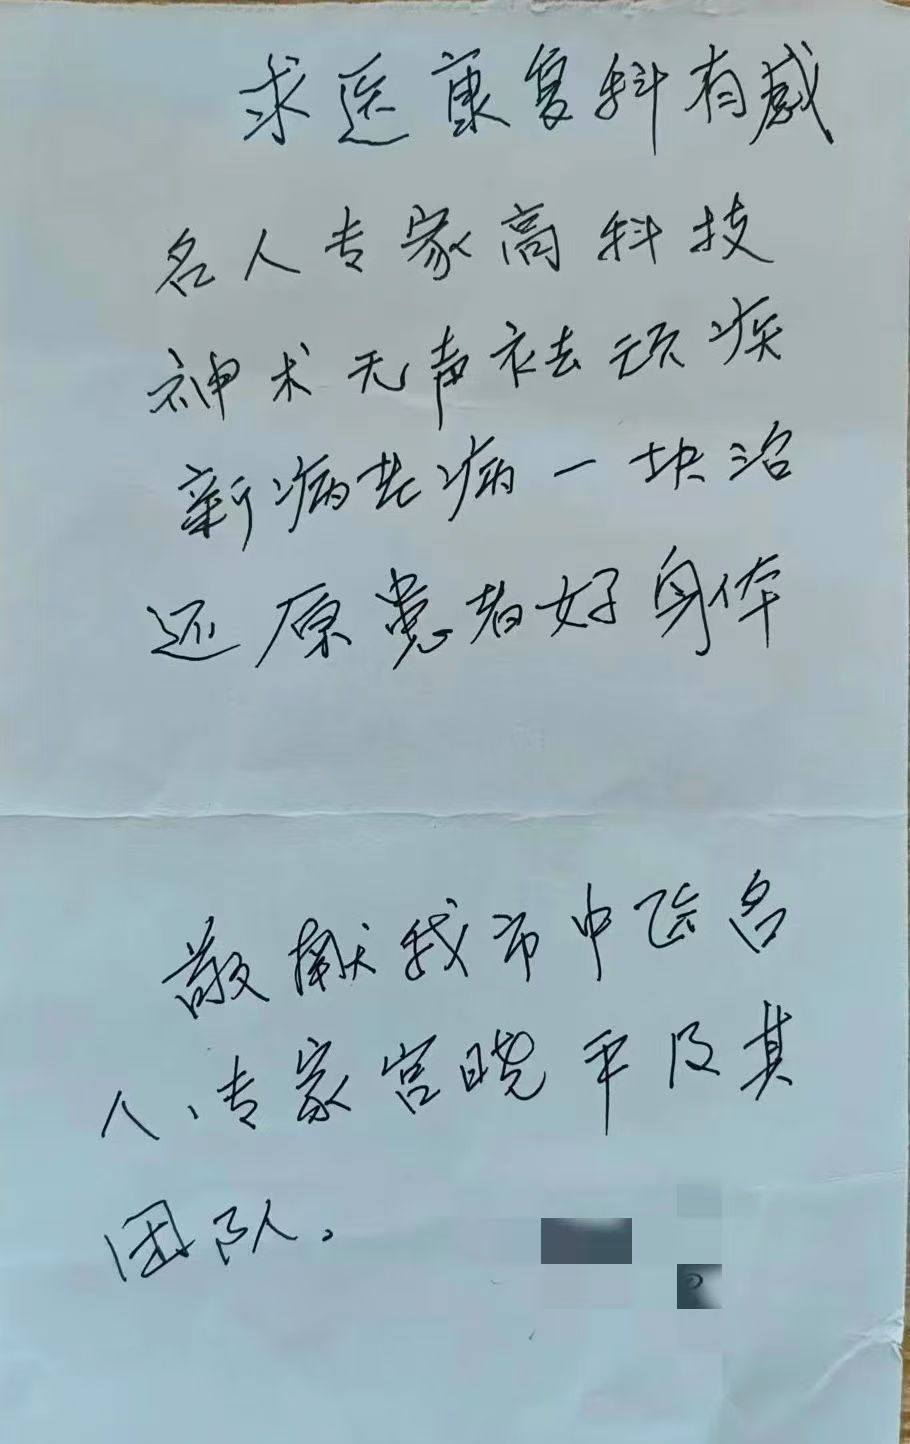 求医康复科有感
名人专家高科技
神术无声祛顽疾
新病老病一块治
还原患者好身体
敬献我市中医名
人、专家宫晓平及其
团队。